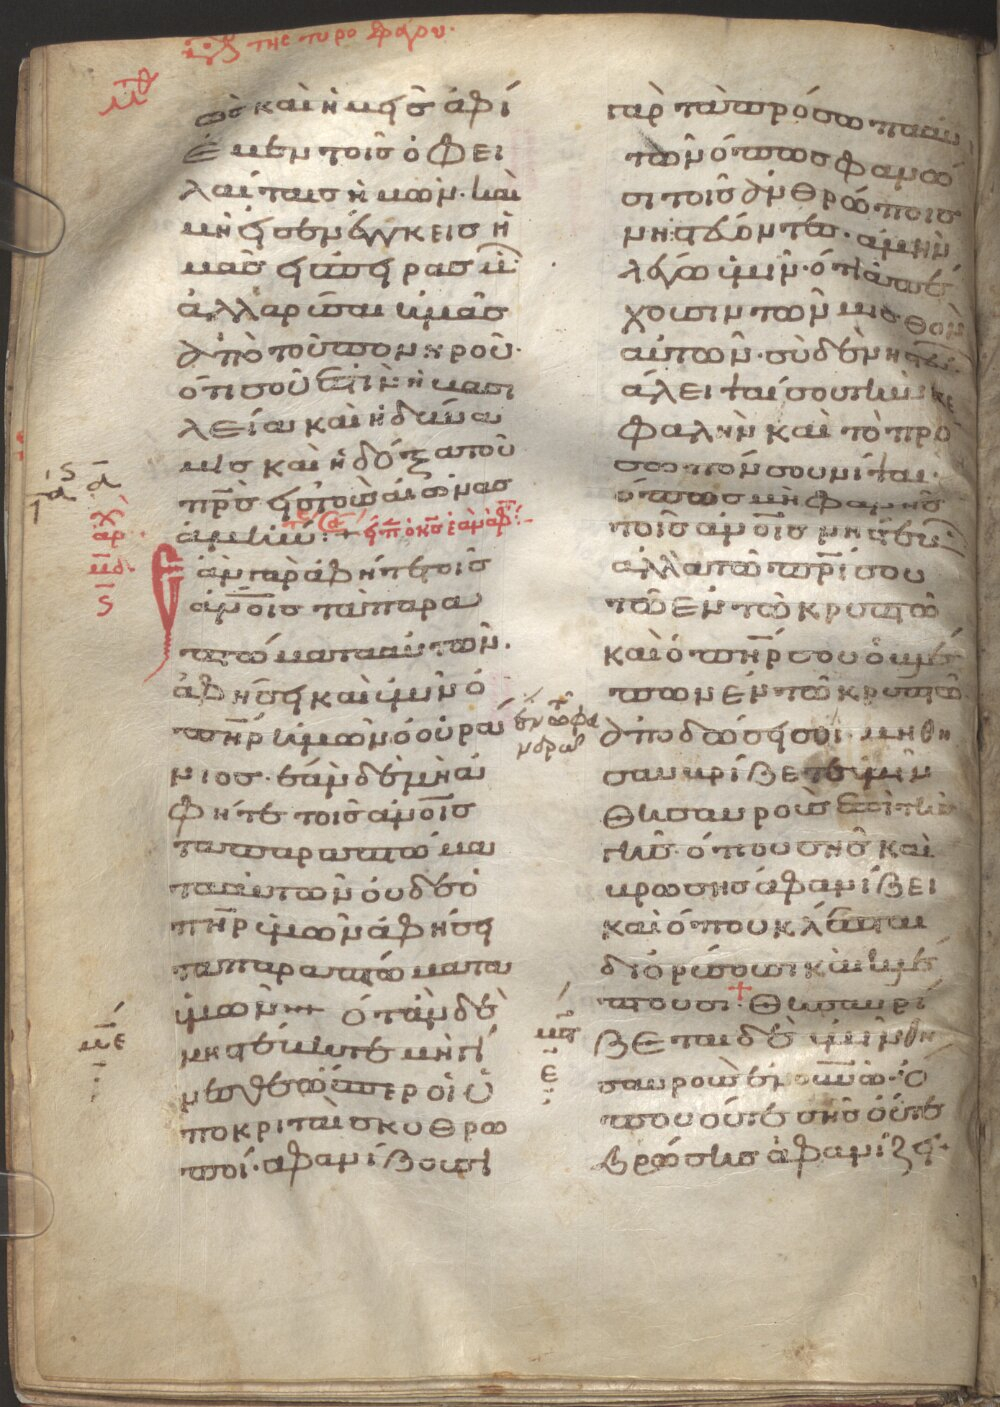 της τυρο φαγου
ὡς καὶ ἡμεῖς ἀφί
εμεν τοῖς ὀφει
λέταις ἡμῶν· καὶ
μὴ εἰσενέγκεις ἡ
μᾶς εἰς πειρασμὸν
ἀλλα ρῦσαι ἡμᾶς
ἀπὸ τοῦ πονηροῦ·
ὅτι σοῦ ἐστὶν ἡ βασι
λεία καὶ ἡ δύνα
μις καὶ ἡ δόξα τοῦ
πρς εἰς τοὺς αἰῶνας
ἀμήν:
ἀν γὰρ ἀφῆτε τοῖς
ἀνοις τὰ παρα
πτώματα αὐτῶν.
ἀφήσει καὶ ὑμῖν ὁ
πηρ ὑμῶν ὁ οὐρά
νιος· ἐὰν δὲ μὴ ἀ
φῆτε τοῖς ἀνοις
τα παραπτώμα
τα αὐτῶν οὐδὲ ὁ
πηρ ὑμῶν ἀφήσει
τα παραπτώματα
ὑμῶν ὅταν δὲ
νηστεύητε μὴ γί
νεσθε ὥσπερ οἱ ὑ
ποκριταὶ σκυθρω
ποί· ἀφανίζουσι
γὰρ τὰ πρόσωπα αὐ
τῶν ὅπως φανῶ
σι τοῖς ἀνθρώποις
νηστεύοντες· ἀμὴν
λέγω ὑμῖν· ὅτι ἀπέ
χουσιν τὸν μισθὸν
αὐτῶν· σὺ δὲ νηστεύων
ἄλειψαί σου τὴν κε
φαλὴν καὶ τὸ πρό
σωπόν σου νίψαι·
ὅπως μὴ φανῇς
τοῖς ἀνοις νηστεύων
ἀλλὰ τῷ πρί σου
τῷ ἐν τῷ κρυπτῷ
καὶ ὁ πηρ σου ὁ βλέ
πων ἐν τῷ κρυπτῷ
ἀποδώσει σοι· μὴ θη
σαυρίζετε ὑμῖν
θησαυροὺς ἐπὶ τῆς
γῆς· ὅπου σὴς καὶ
βρῶσης ἀφανίζει
καὶ ὅπου κλέπται
διορύσουσι καὶ κλέ
πτουσι· θησαυρί
ζεται δὲ ὑμῖν θη
σαυροὺς ἐν οὐνῷ· ὅ
που οὔτε σὴς οὔτε
βρῶσις ἀφανίζει·